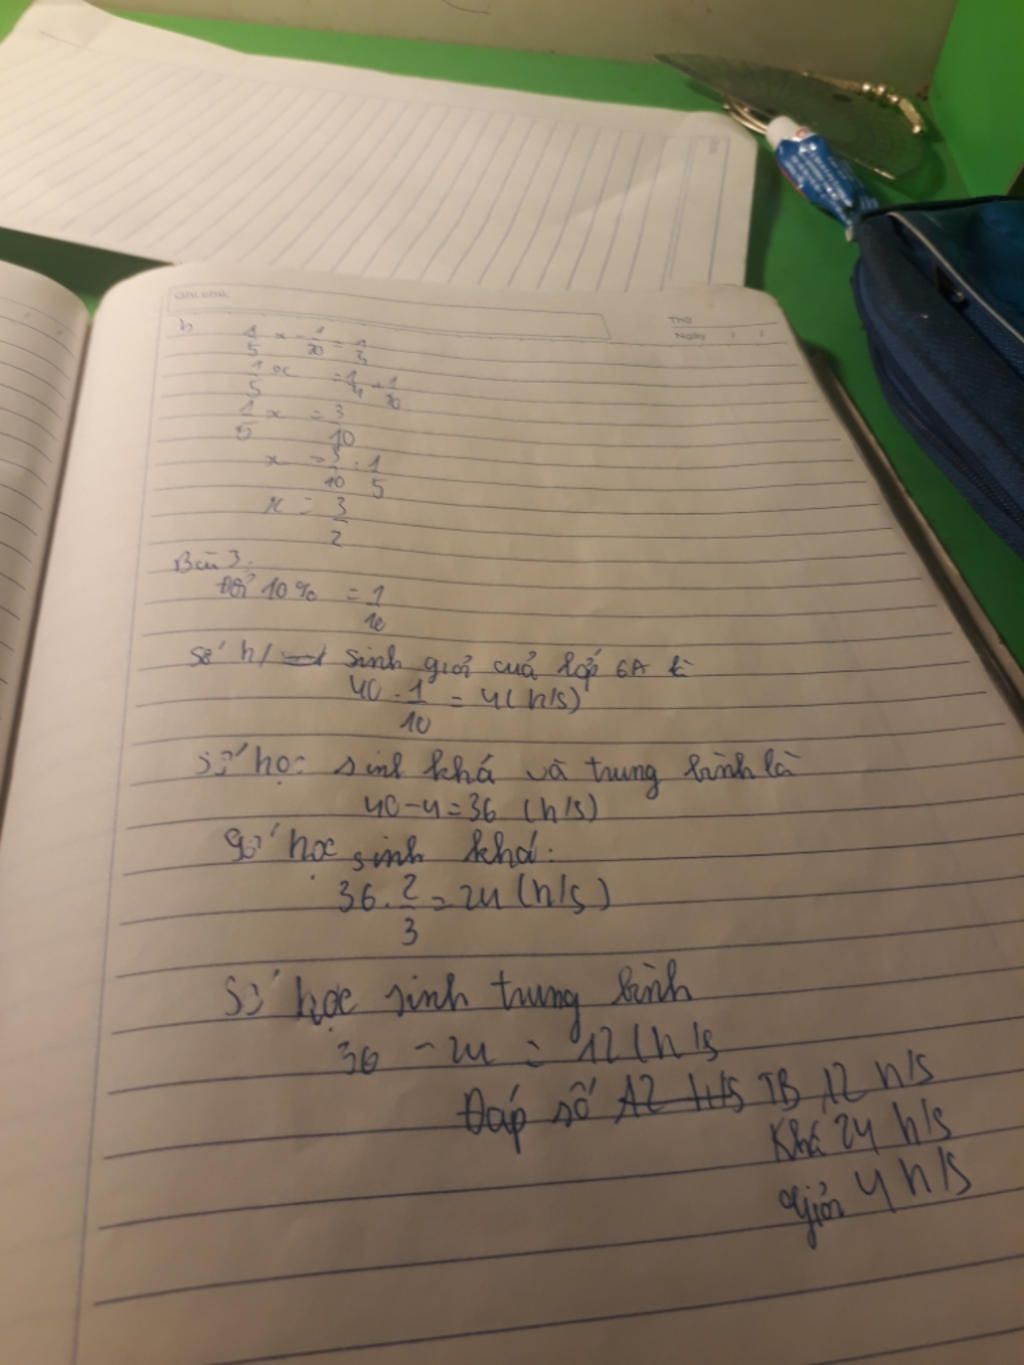 Thứ
Ngày
b
1/5 x - 1/20 = 1/4
1/5 x = 1/4 + 1/20
1/5 x = 3/10
x = 3/10 . 1/5
x = 3/2
Bài 3:
Đổi 10% = 1/10
Số h/ sinh giỏi cuả lớp 6A là
40 . 1/10 = 4 (h/s)
Số học sinh khá và trung bình là
40 - 4 = 36 (h/s)
Số học sinh khá:
36 . 2/3 = 24 (h/s)
Số học sinh trung bình
36 - 24 = 12 (h/s
Đáp số 12 H/S TB 12 h/s
Khá 24 h/s
giỏi 4 h/s